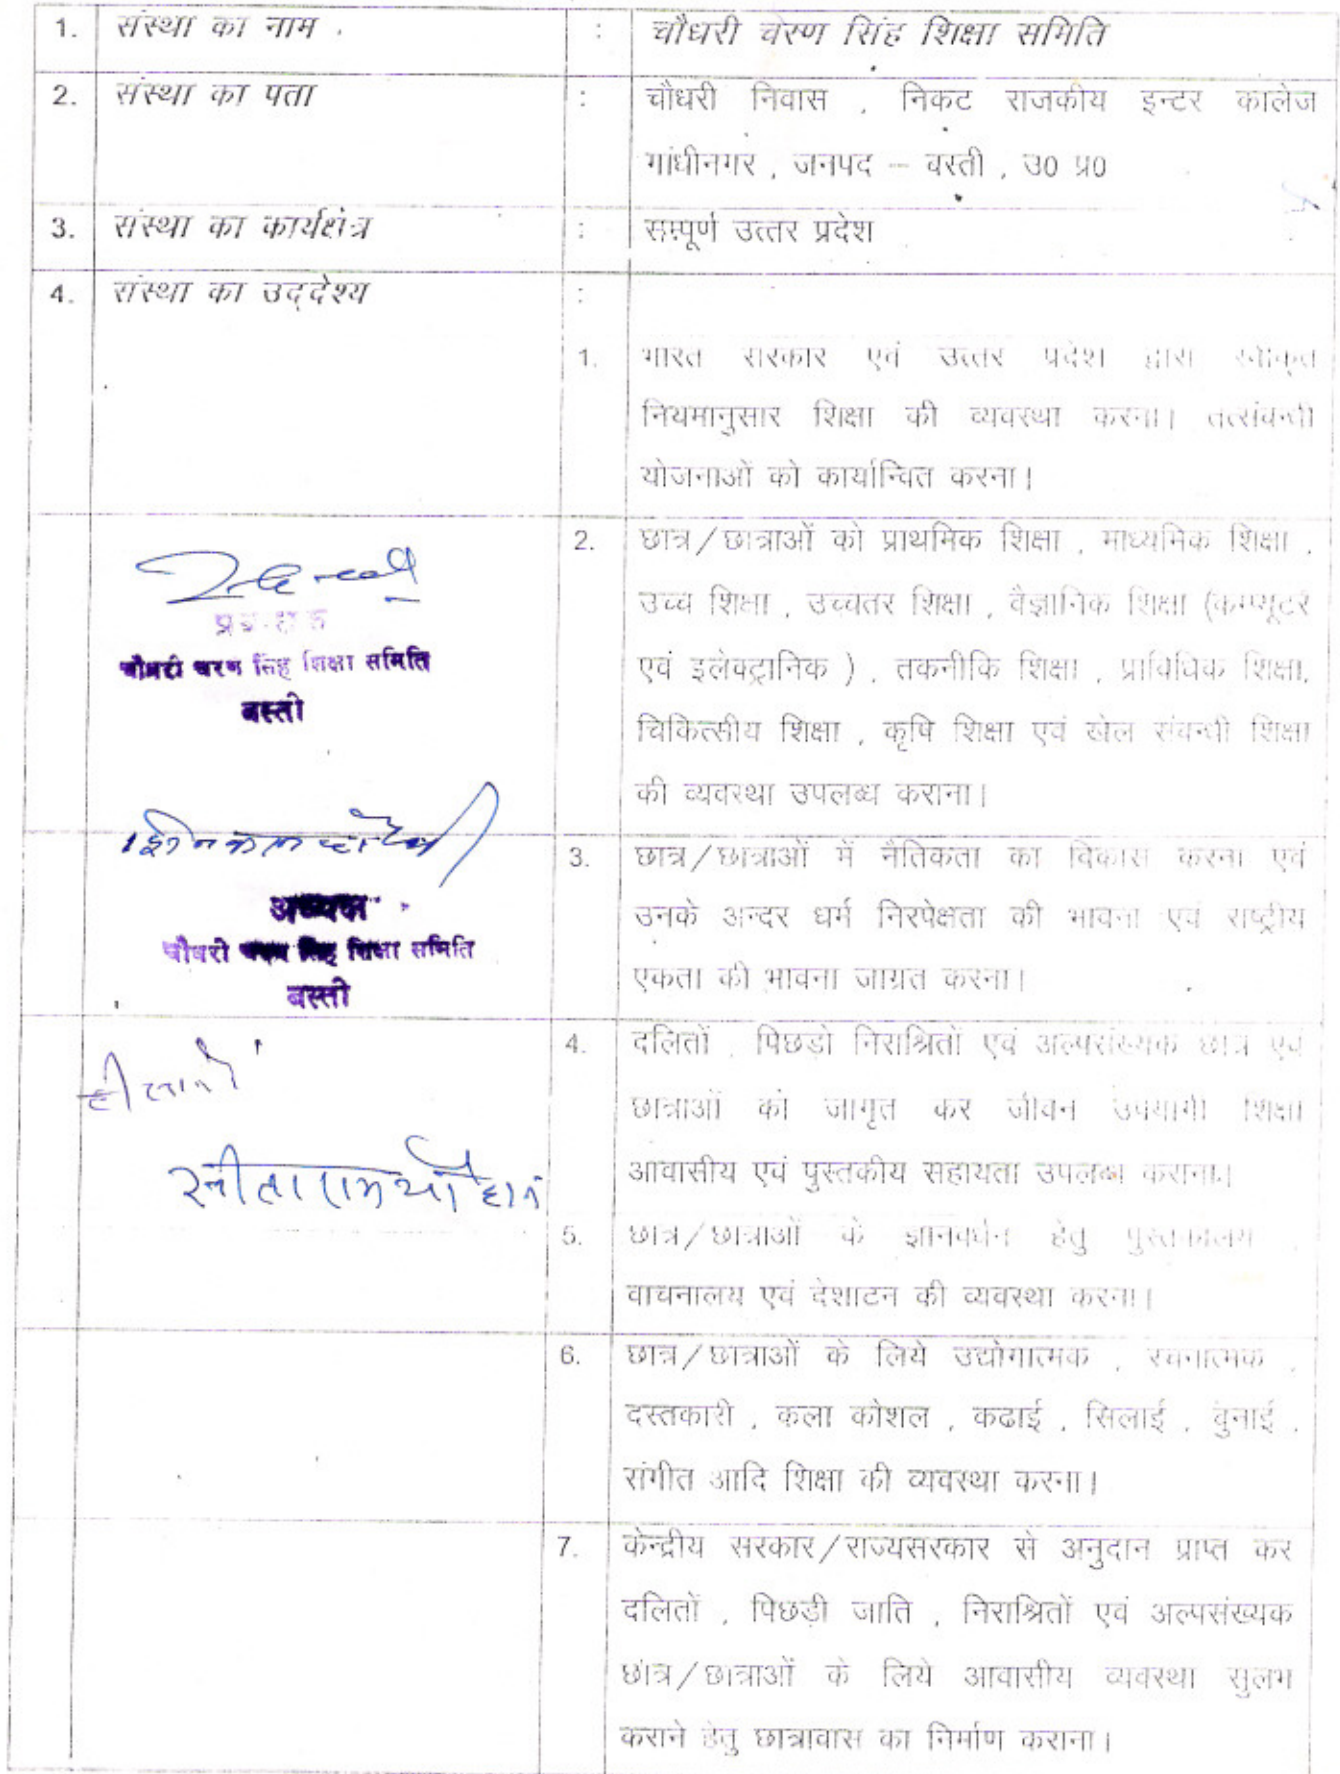 1. संस्था का नाम : चौधरी चरण सिंह शिक्षा समिति
2. संस्था का पता : चौधरी निवास , निकट राजकीय इन्टर कालेज
गांधीनगर , जनपद – बस्ती , उ0 प्र0
3. संस्था का कार्यक्षेत्र : सम्पूर्ण उत्तर प्रदेश
4. संस्था का उद्देश्य :
1. भारत सरकार एवं उत्तर प्रदेश द्वारा स्वीकृत
नियमानुसार शिक्षा की व्यवस्था करना। तत्संबन्धी
योजनाओं को कार्यान्वित करना।
2. छात्र/छात्राओं को प्राथमिक शिक्षा , माध्यमिक शिक्षा ,
उच्च शिक्षा , उच्चतर शिक्षा , वैज्ञानिक शिक्षा (कम्प्यूटर
एवं इलेक्ट्रानिक ) , तकनीकि शिक्षा , प्राविधिक शिक्षा,
चिकित्सीय शिक्षा , कृषि शिक्षा एवं खेल संबन्धी शिक्षा
की व्यवस्था उपलब्ध कराना।
प्रबन्धक
चौधरी चरण सिंह शिक्षा समिति
बस्ती
3. छात्र/छात्राओं में नैतिकता का विकास करना एवं
उनके अन्दर धर्म निरपेक्षता की भावना एवं राष्ट्रीय
एकता की भावना जाग्रत करना।
अध्यक्ष
चौधरी चरण सिंह शिक्षा समिति
बस्ती
4. दलितों , पिछडो निराश्रितों एवं अल्पसंख्यक छात्र एवं
छात्राओं को जागृत कर जीवन उपयोगी शिक्षा
आवासीय एवं पुस्तकीय सहायता उपलब्ध कराना।
5. छात्र/छात्राओं के ज्ञानवर्धन हेतु पुस्तकालय ,
वाचनालय एवं देशाटन की व्यवस्था करना।
6. छात्र/छात्राओं के लिये उद्योगात्मक , रचनात्मक ,
दस्तकारी , कला कोशल , कढाई , सिलाई , बुनाई ,
संगीत आदि शिक्षा की व्यवस्था करना।
7. केन्द्रीय सरकार/राज्यसरकार से अनुदान प्राप्त कर
दलितों , पिछड़ी जाति , निराश्रितों एवं अल्पसंख्यक
छात्र/छात्राओं के लिये आवासीय व्यवस्था सुलभ
कराने हेतु छात्रावास का निर्माण कराना।